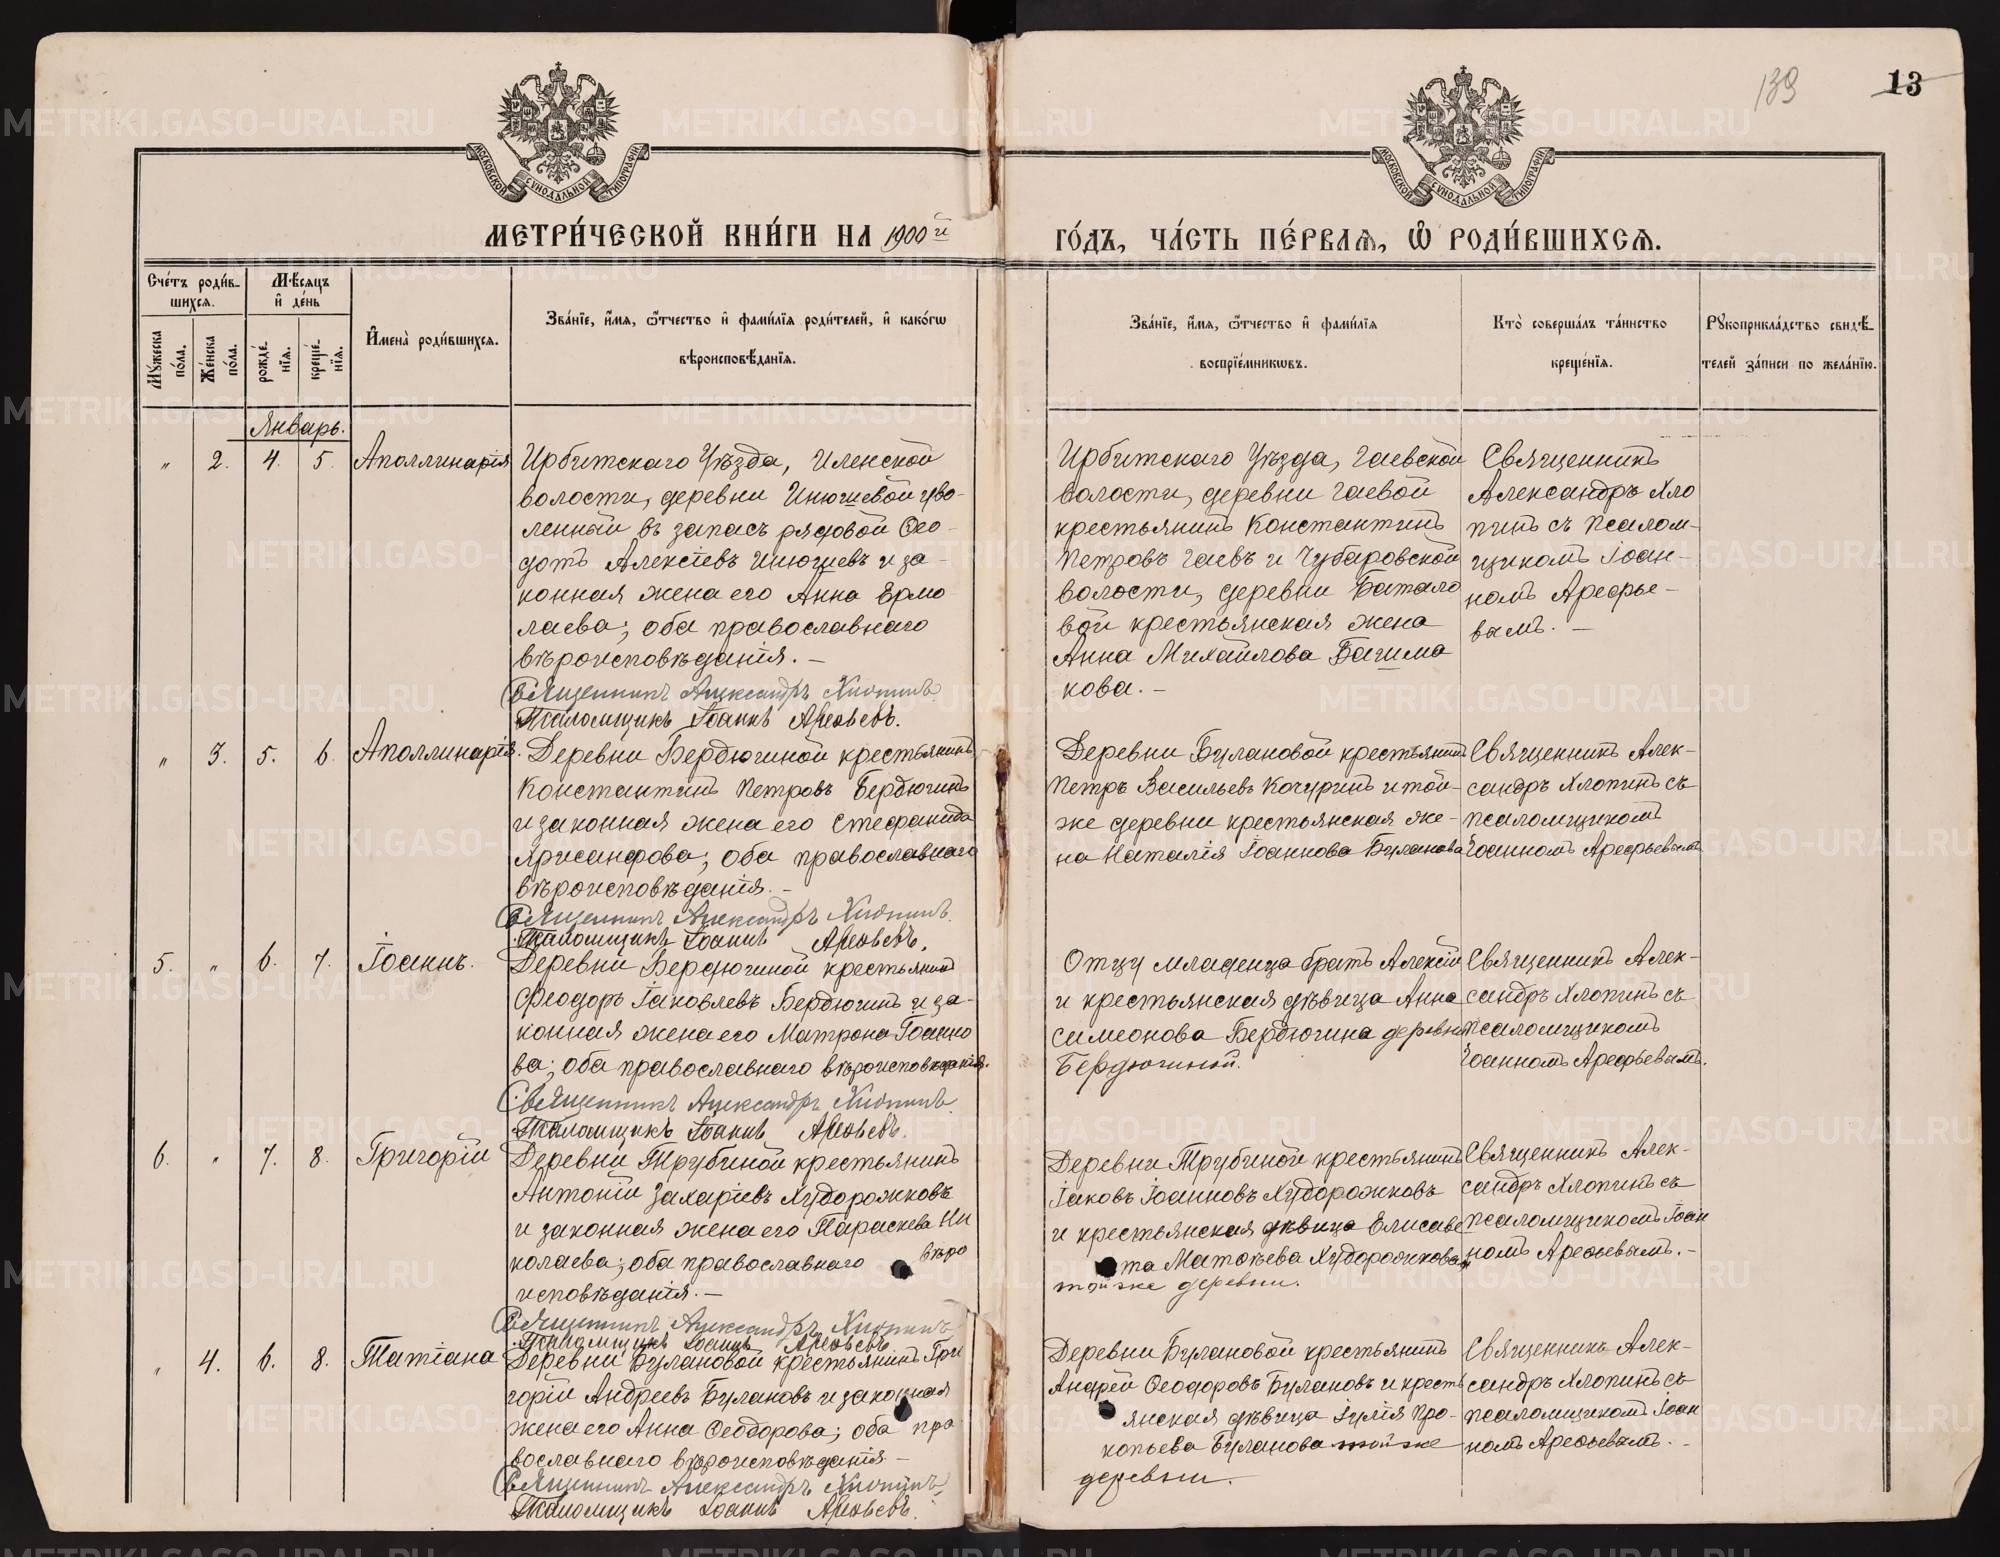 139
13
МОСКОВСКОЙ СѴНОДАЛЬНОЙ ТИПОГРАФІИ
МОСКОВСКОЙ СѴНОДАЛЬНОЙ ТИПОГРАФІИ
МЕТРИ́ЧЕСКОЙ КНИ́ГИ НА 1900й
ГО́ДЪ, ЧА́СТЬ ПЕ́РВАѦ, Ѽ РОДИ́ВШИХСѦ.
Сче́тъ роди́в-
шихсѧ.
Мѣ́сяцъ
и҆ де́нь
Мꙋ́жеска
по́ла.
Же́нска
по́ла.
рожде́-
нїѧ.
креще́-
нїѧ.
И҆мена̀ роди́вшихсѧ.
Зва́нїе, и҆́мѧ, ѻ҆́тчество и҆ фами́лїѧ роди́телей, и҆ како́гѡ
вѣроисповѣ́данїѧ.
Зва́нїе, и҆́мѧ, ѻ҆́тчество и҆ фами́лїѧ
воспрїе́мникѡвъ.
Кто̀ соверша́лъ та́инство
креще́нїѧ.
Рꙋкоприкла́дство свидѣ́-
телей за́писи по жела́нїю.
Январь.
" 2. 4. 5. Аполлинарія
Ирбитскаго Уѣзда, Иленской
волости, деревни Инюшевой уво-
ленный въ запасъ рядовой Ѳео-
дотъ Алексіевъ Инюшевъ и за-
конная жена его Анна Ермо
лаева; оба православнаго
вѣроисповѣданія. –
Священникъ Александръ Хлопинъ
Псаломщикъ Іоаннъ Арефьевъ.
Ирбитскаго Уѣзда, Гаевской
волости, деревни Гаевой
крестьянинъ Константинъ
Петровъ Гаевъ и Чубаровской
волости, деревни Батало
вой крестьянская жена
Анна Михайлова Башма
кова. –
Священникъ
Александръ Хло
пинъ съ псалом-
щикомъ Іоан-
номъ Арефье-
вымъ. –
" 3. 5. 6 Аполлинарія.
Деревни Бердюгиной крестьянинъ
Константинъ Петровъ Бердюгинъ
и законная жена его Стефанида
Хрисанфова; оба православнаго
вѣроисповѣданія. –
Священникъ Александръ Хлопинъ.
Псаломщикъ Іоаннъ Арефьевъ.
Деревни Булановой крестьянинъ
Петръ Васильевъ Кочуринъ и той-
же деревни крестьянская же-
на Наталія Іоаннова Буланова
Священникъ Алек-
сандръ Хлопинъ съ
псаломщикомъ
Іоанномъ Арефьевымъ
5. " 6. 7. Іоаннъ.
Деревни Бердюгиной крестьянинъ
Ѳеодоръ Іаковлевъ Бердюгинъ и за-
конная жена его Матрона Іоанно
ва; оба православнаго вѣроисповѣданія.
Священникъ Александръ Хлопинъ
Псаломщикъ Іоаннъ Арефьевъ.
Отцу младенца братъ Алексій
и крестьянская дѣвица Анна
Симеонова Бердюгина деревни
Бердюгиной.
Священникъ Алек-
сандръ Хлопинъ съ
псаломщикомъ
Іоанномъ Арефьевымъ.
6. " 7. 8. Григорій
Деревни Трубиной крестьянинъ
Антоній Захаріевъ Худорожковъ
и законная жена его Параскева Ни
колаева; оба православнаго вѣро
исповѣданія. –
Священникъ Александръ Хлопинъ
Псаломщикъ Іоаннъ Арефьевъ.
Деревни Трубиной крестьянинъ
Іаковъ Іоанновъ Худорожковъ
и крестьянская дѣвица Елисаве
та Матѳѣева Худорожкова
тойже деревни.
Священникъ Алек-
сандръ Хлопинъ съ
псаломщикомъ Іоан
номъ Арефьевымъ. –
" 4. 6. 8. Татіана
Деревни Булановой крестьянинъ Гри
горій Андреевъ Булановъ и законная
жена его Анна Ѳеодорова; оба пра
вославнаго вѣроисповѣданія –
Священникъ Александръ Хлопинъ
Псаломщикъ Іоаннъ Арефьевъ.
Деревни Булановой крестьянинъ
Андрей Ѳеодоровъ Булановъ и кресть
янская дѣвица Іулія Про-
копьева Буланова тойже
деревни.
Священникъ Алек-
сандръ Хлопинъ съ
псаломщикомъ Іоан
номъ Арефьевымъ. –
METRIKI.GASO-URAL.RU